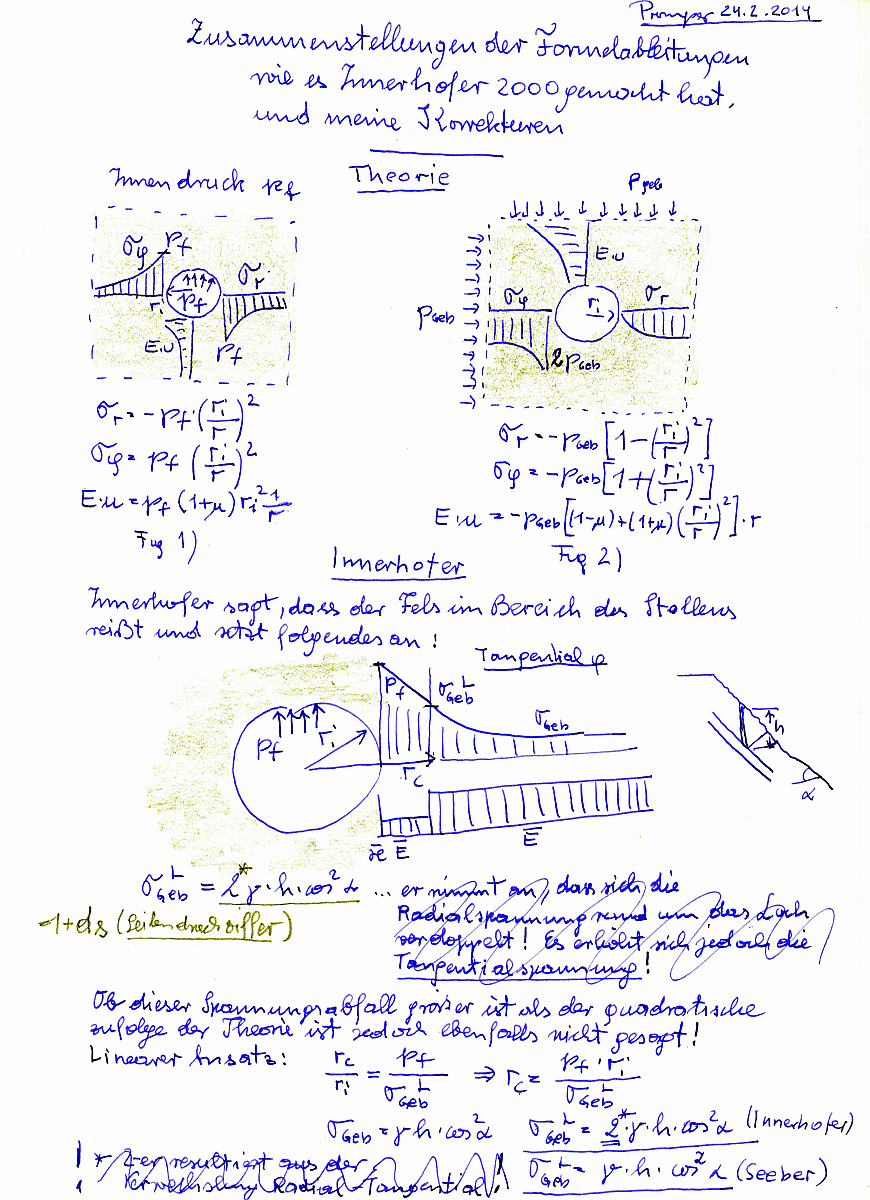 24.2.2014
Zusammenstellungen der Formelableitungen
wie es Innerhofer 2000 gemacht hat,
und meine Korrekturen
Theorie
Innendruck pf
σφ pf
σr
pf
ri
E·u
pf
σr = -pf·(ri/r)²
σφ = pf (ri/r)²
E·u = pf (1+μ) ri² 1/r
Fig 1)
pgeb
E·u
pGeb
σφ
ri
σr
2pGeb
σr = -pGeb[1-(ri/r)²]
σφ = -pGeb[1+(ri/r)²]
E·u = -pGeb[(1-μ)+(1+μ)(ri/r)²]·r
Fig 2)
Innerhofer
Innerhofer sagt, dass der Fels im Bereich des Stollens
reißt und setzt folgendes an!
Tangential φ
pf
σGeb^L
σGeb
pf
ri
rc
h
α
æ Ē
Ē
σGeb^L = 2*γ·h·cos²α ... er nimmt an, dass sich die
Radialspannung rund um das Loch
verdoppelt! Es erhöht sich jedoch die
Tangentialspannung!
1+ds (Seitendruckziffer)
Ob dieser Spannungsabfall größer ist als der quadratische
zufolge der Theorie ist jedoch ebenfalls nicht gesagt!
Linearer Ansatz: rc/ri = pf/σGeb^L ⇒ rc = pf·ri/σGeb^L
σGeb = γ·h·cos²α σGeb^L = 2*·γ·h·cos²α (Innerhofer)
! * 2-er resultiert aus der
! Verwechslung Radial-Tangential!
σGeb^L = γ·h·cos²α (Seeber)